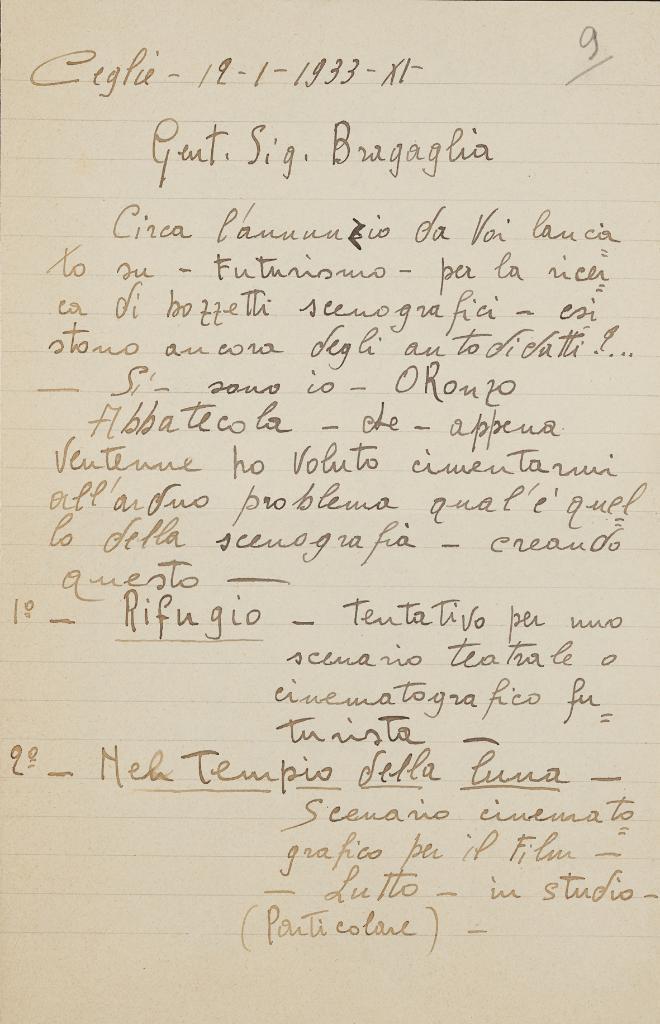 9
Ceglie - 12-1-1933-XI-
Gent. Sig. Bragaglia
Circa l'annunzio da Voi lancia
to su - Futurismo - per la ricer=
ca di bozzetti scenografici - esi=
stono ancora degli autodidatti?...
— Si - sono io - ORonzo
Abbatecola - che - appena
ventenne ho voluto cimentarmi
all'arduo problema qual'é quel=
lo della scenografia - creando
questo —
1º - Rifugio - tentativo per uno
scenario teatrale o
cinematografico fu=
turista —
2º - Nel Tempio della luna —
Scenario cinemato=
grafico per il Film —
— Lutto - in studio-
(Particolare) -